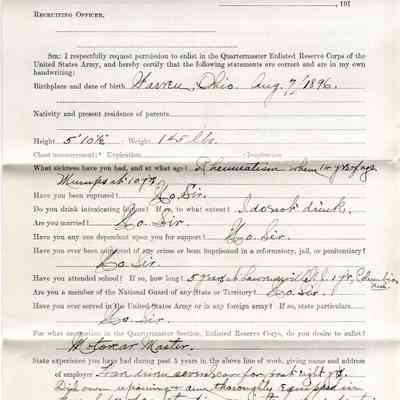 , 191
RECRUITING OFFICER,
SIR: I respectfully request permission to enlist in the Quartermaster Enlisted Reserve Corps of the
United States Army, and hereby certify that the following statements are correct and are in my own
handwriting:
Birthplace and date of birth Warren, Ohio. Aug. 7/1896.
Nativity and present residence of parents
Height 5' 10½" Weight 145 lbs.
Chest measurement: Expiration Inspiration
What sickness have you had, and at what age? Rheumatism when 14 yrs of age
Mumps at 10 yrs.
Have you been ruptured? No Sir.
Do you drink intoxicating liquors? If so, to what extent? I do not drink.
Are you married? No Sir.
Have you any one dependent upon you for support? No Sir.
Have you ever been convicted of any crime or been imprisoned in a reformatory, jail, or penitentiary?
No Sir
Have you attended school? If so, how long? 5 years at 1 yr. Columbia
Are you a member of the National Guard of any State or Territory? No Sir.
Have you ever served in the United States Army or in any foreign army? If so, state particulars.
No Sir.
For what organization in the Quartermaster Section, Enlisted Reserve Corps, do you desire to enlist?
Motorcar Master.
State experience you have had during past 5 years in the above line of work, giving name and address
of employer for past eight yrs.
Did own repairing + am thoroughly equipped in